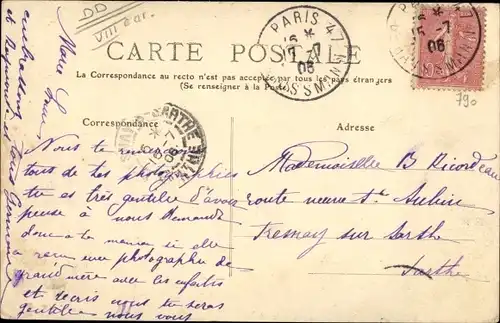 DD
VIIIe ar.
CARTE POSTALE
La Correspondance au recto n'est pas acceptée par tous les pays étrangers
(Se renseigner à la Poste)
PARIS 47
15 *
17 - 7
06
HAUSSMANN
PARIS 47
15 - 7
06
HAUSSMANN
790
Correspondance
SARTHE
Adresse
Nous te remercions
tous de tes photographies
tu es très gentille d'avoir
pensé à nous Demande
donc à ta maman si elle
a reçu une photographie de
grand'mère avec les enfants
et écris nous tu seras
gentille nous vous
embrassons
et Raymond et
Marie
Mademoiselle B Ricordeau
route neuve St Aubin
Fresnay sur Sarthe
Sarthe